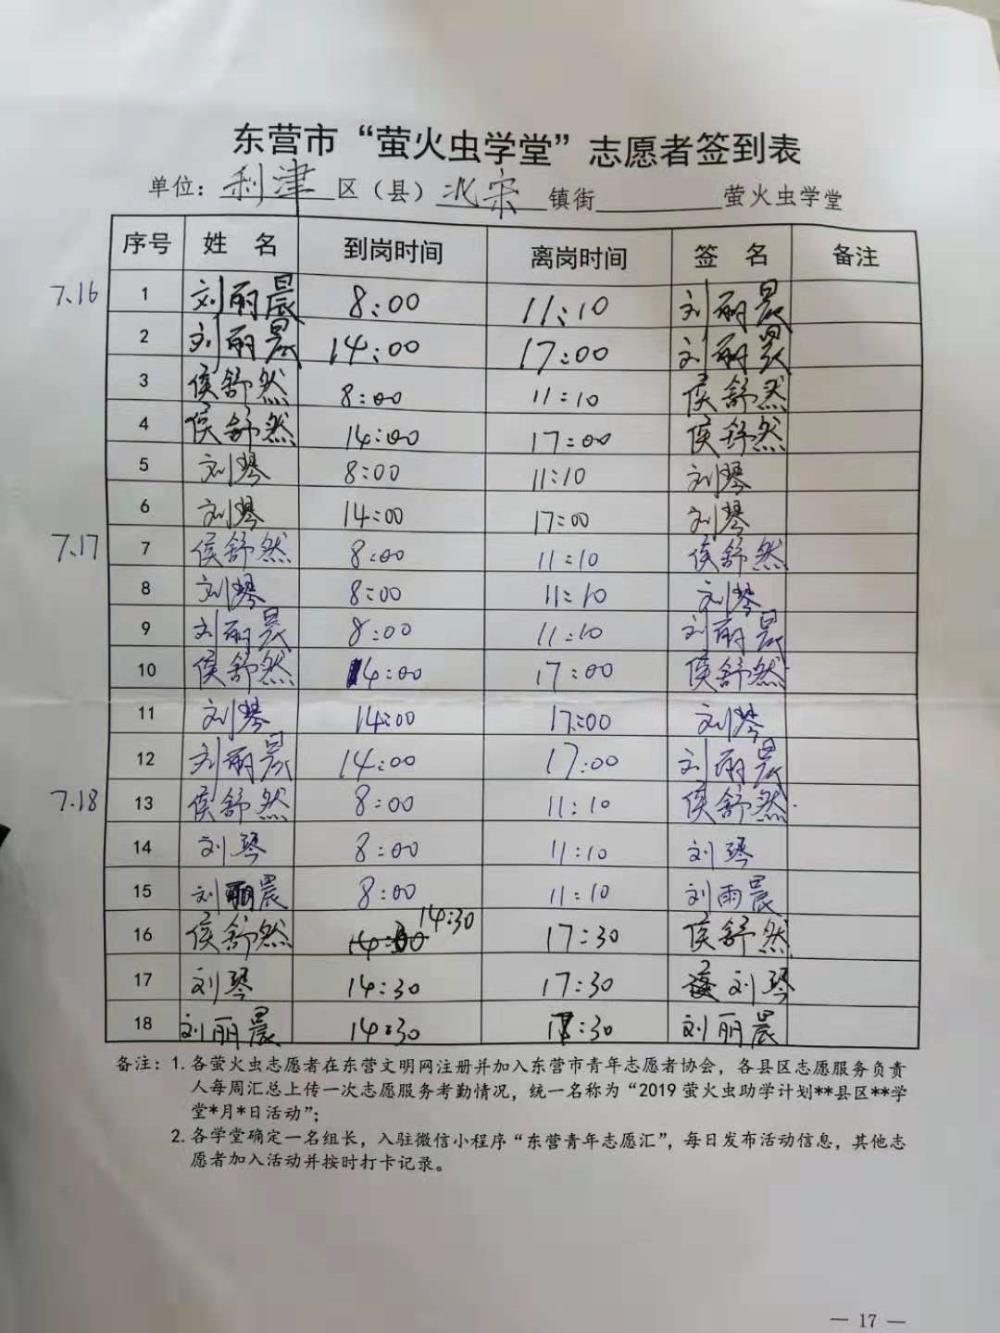 东营市“萤火虫学堂”志愿者签到表
单位：利津区（县）北宋镇街________萤火虫学堂
序号 姓 名 到岗时间 离岗时间 签 名 备注
7.16 1 刘丽晨 8:00 11:10 刘丽晨
2 刘丽晨 14:00 17:00 刘丽晨
3 侯舒然 8:00 11:10 侯舒然
4 侯舒然 14:00 17:00 侯舒然
5 刘琴 8:00 11:10 刘琴
6 刘琴 14:00 17:00 刘琴
7.17 7 侯舒然 8:00 11:10 侯舒然
8 刘琴 8:00 11:10 刘琴
9 刘丽晨 8:00 11:10 刘丽晨
10 侯舒然 14:00 17:00 侯舒然
11 刘琴 14:00 17:00 刘琴
12 刘丽晨 14:00 17:00 刘丽晨
7.18 13 侯舒然 8:00 11:10 侯舒然
14 刘琴 8:00 11:10 刘琴
15 刘丽晨 8:00 11:10 刘雨晨
16 侯舒然 14:30 17:30 侯舒然
17 刘琴 14:30 17:30 刘琴
18 刘丽晨 14:30 17:30 刘丽晨
备注：1. 各萤火虫志愿者在东营文明网注册并加入东营市青年志愿者协会，各县区志愿服务负责
人每周汇总上传一次志愿服务考勤情况，统一名称为“2019 萤火虫助学计划**县区**学
堂*月*日活动”；
2. 各学堂确定一名组长，入驻微信小程序“东营青年志愿汇”，每日发布活动信息，其他志
愿者加入活动并按时打卡记录。
— 17 —